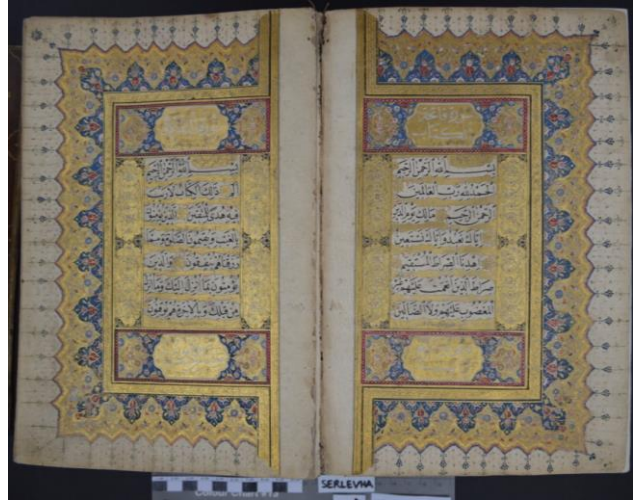 بسم الله الرحمن الرحيم
الحمد لله رب العالمين
الرحمن الرحيم مالك يوم الدين
اياك نعبد واياك نستعين
اهدنا الصراط المستقيم
صراط الذين انعمت عليهم غير
المغضوب عليهم ولا الضالين
بسم الله الرحمن الرحيم
الم ذلك الكتاب لا ريب
فيه هدى للمتقين الذين يؤمنون
بالغيب ويقيمون الصلوة ومما
رزقناهم ينفقون والذين
يؤمنون بما انزل اليك وما انزل
من قبلك وبالاخرة هم يوقنون
SERLEVHA
Colour Chart